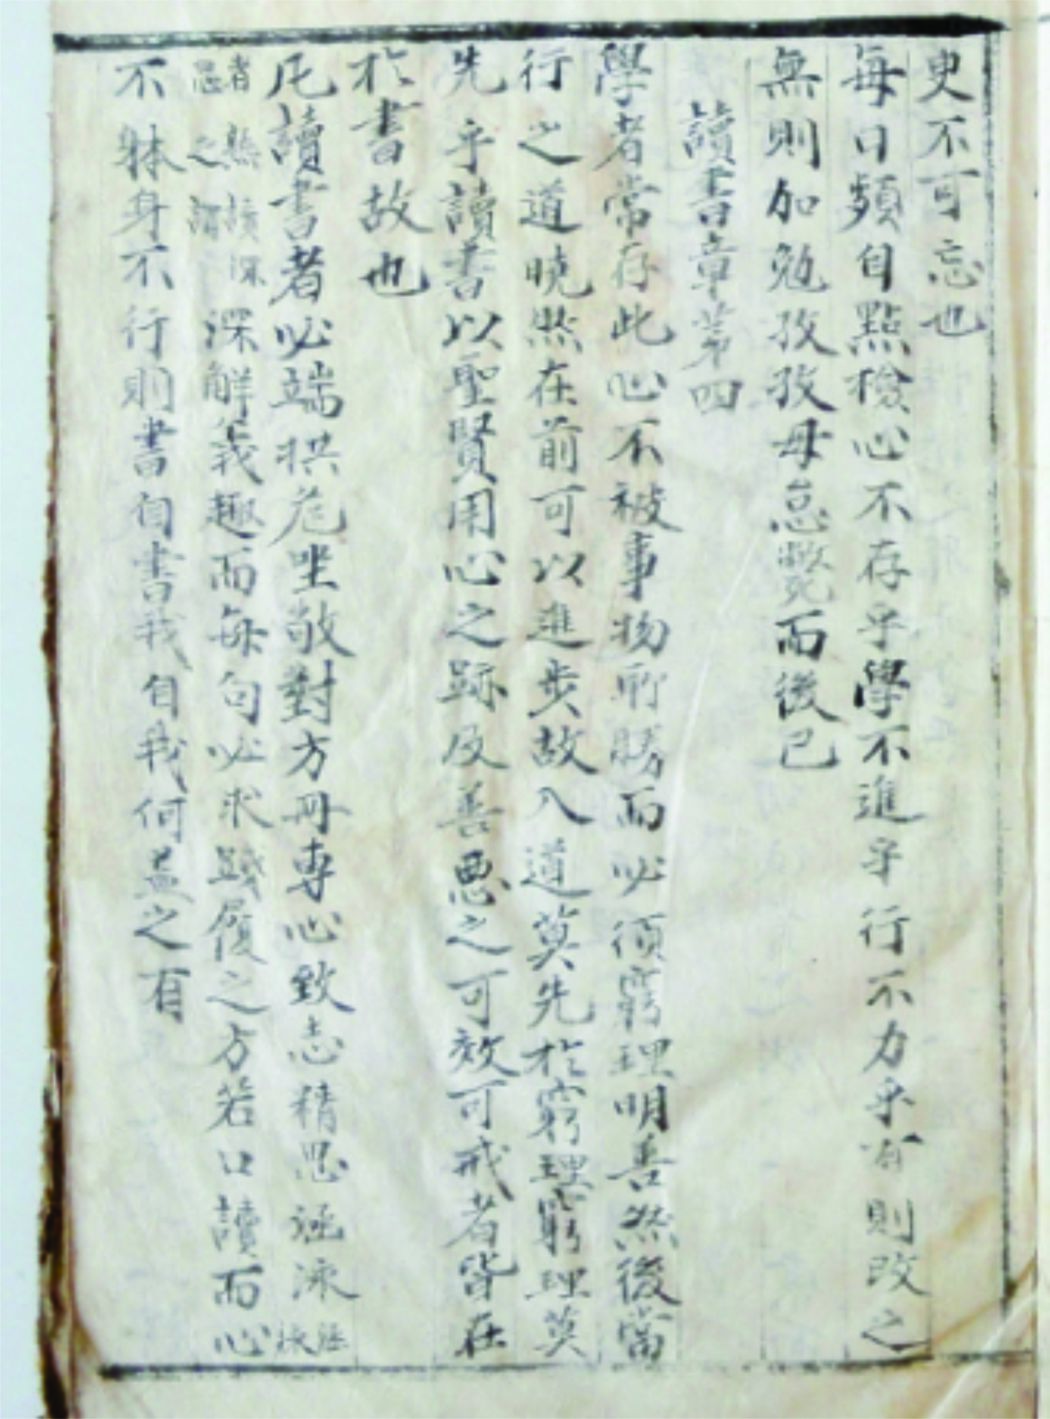 史不可忘也
每日頻自點檢心不存乎學不進乎行不力乎有則改之
無則加勉孜孜毋怠斃而後已
讀書章第四
學者常存此心不被事物所勝而必須窮理明善然後當
行之道曉然在前可以進步故入道莫先於窮理窮理莫
先乎讀書以聖賢用心之跡及善惡之可效可戒者皆在
於書故也
凡讀書者必端拱危坐敬對方冊專心致志精思涵泳涵泳
者熟讀深思之謂深解義趣而每句必求踐履之方若口讀而心
不躰身不行則書自書我自我何益之有